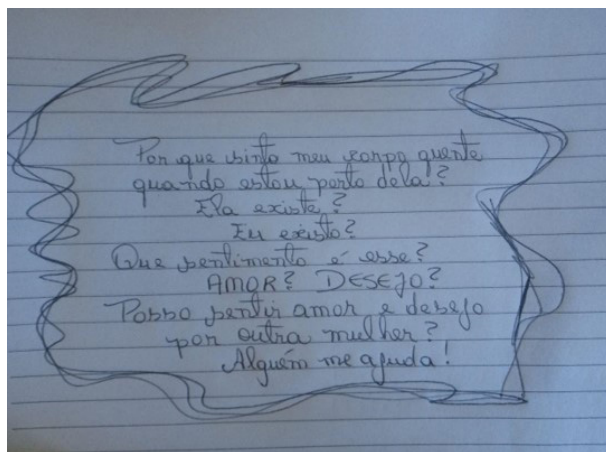 Por que sinto meu corpo quente
quando estou perto dela?
Ela existe?
Eu existo?
Que sentimento é esse?
AMOR? DESEJO?
Posso sentir amor e desejo
por outra mulher?
Alguém me ajuda!